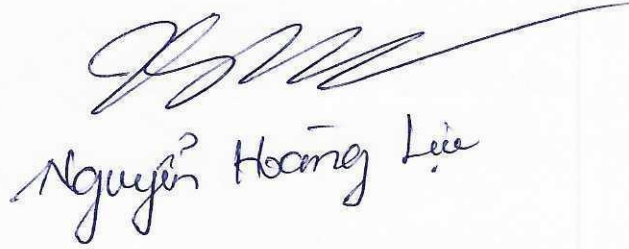 Nguyễn Hoàng Lựu